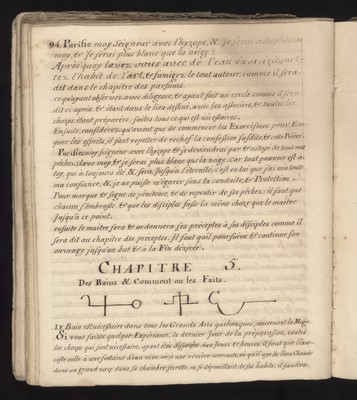 94. Purifie moy Seigneur avec l'hyzope, & Je serai nétoyé
moy, & Je serai plus blanc que la neige:
Après quoy lavez vous avec de l'eau exorcizée,
tez l'habit de l'art, & fumigez le tout autour; comme il sera
dit dans le chapitre des parfums.
ce qu'ayant observé avec diligence, & ayant fait un cercle comme il sera
dit cy après, & étant dans le lieu destiné, avec les associez, & toutes les
choses étant préparées, faites tous ce qui est nécessaires.
Ensuite considérez; qu'avant que de commencer les Exorcismes pour
quer les esprits, il faut repeller de rechef la confession susdite, & cette Prière.
Purifie moy seigneur avec l'hyzope & je deviendrai pur & nétoyé de tous mes
péchez; lave moy, & je serai plus blanc que la neige, car tout pouvoir est à
toy, qui à toujours été & sera Jusqu'à l'éternité; c'est en toi que j'ai mis toute
ma confiance, & je ne puisse m'égarer sous ta conduite, & Protection.
Pour marque & signe de pénitence, & de repentir de ses péchez; il faut que
chacun s'embrasse, & que les disciples fasse la même chose que le maitre
Jusqu'à ce point.
ensuite le maitre sera & ordonnera ses préceptes à ses disciples comme il
sera dit au chapitre des préceptes. Il faut qu'il poursuive & continue son
ouvrage jusqu'au but & à la Fin désirée.
CHAPITRE 5.
Des Bains & Comment on les Faits.
LE Bain est nécessaire dans tous les Grands Arts quelconques, concernant la Magie.
Si vous faites quelque Expérience, le dernier Jour de la préparation, toutes
les choses qui sont nécessaire, ayant été disposées aux Jours & heures, il faut que l'Exor-
ciste aille à une fontaine d'eau vive, ou à une rivière courante, ou qu'il aye de l'eau Chaude
dans un grand vase dans sa chambre secrette, en se dépouillant de ses habits, il faudra.